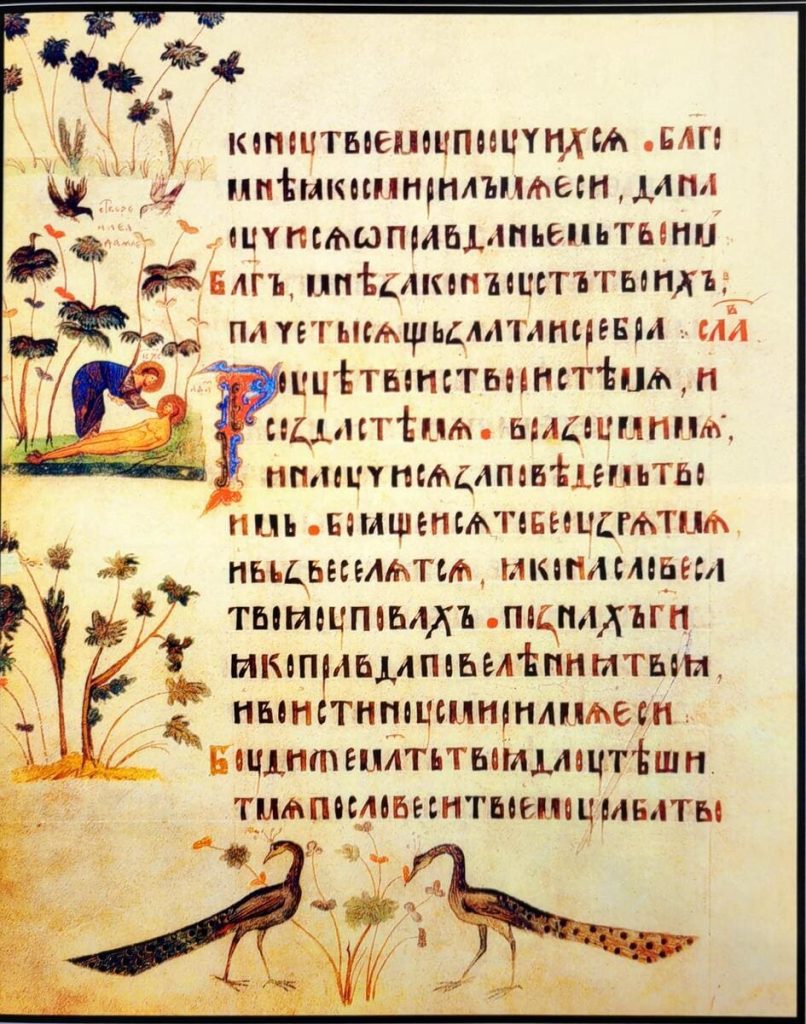 коноу твоемоу пооучихсѧ • бл҃го
мнѣ ꙗко смирилъ мѧ еси, да на
оучисѧ ѡправданьемь твоим :
Бл҃гъ, мнѣ законъ оустъ твоихъ,
паче тысѧщь злата и сребра : слав
Роуцѣ твои створистѣ мѧ, и
создастѣ мѧ • вразоуми мѧ,
и наоучисѧ заповѣдемь тво
имь • боꙗщеисѧ тобе оузрѧт мѧ,
и възвеселѧтсѧ, ꙗко на словеса
твоꙗ оуповахъ • познахъ г҃и
ꙗко правда повелѣниꙗ твоꙗ,
и воистиноу смирил мѧ еси
Боуди же мл҃ть твоꙗ да оутѣши
т мѧ по словеси твоемоу раба тво